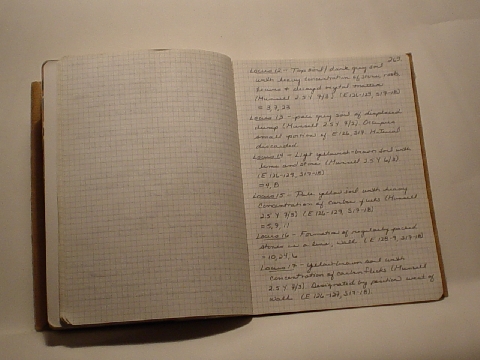 269
Locus 12 - Topsoil/dark grey soil
with heavy concentration of stones, roots
(Munsell 2.5 Y 7/3) (E 126-129, S 17-18)
= 3, 7, 23
Locus 13 - pure grey soil of displaced
dump (Munsell 2.5 Y 7/2). Occupies
small portion of E 126, S 17. Material
discarded
Locus 14 - Light yellowish-brown soil with
lime and stone (Munsell 2.5 Y 6/3)
(E 126-129, S 17-18)
= 9, 8
Locus 15 - Pale yellow soil with heavy
concentration of carbon flecks (Munsell
2.5 Y 7/3) (E 126-129, S 17-18)
= 5, 9, 11
Locus 16 - Formation of regularly placed
stones in a line, wall (E S 17-18)
= 10, 24, 6
Locus 17 - yellow-brown soil with
concentration of carbon flecks (Munsell
2.5 Y 7/3). Designated by position west of
wall (E 126-127, S 17-18).